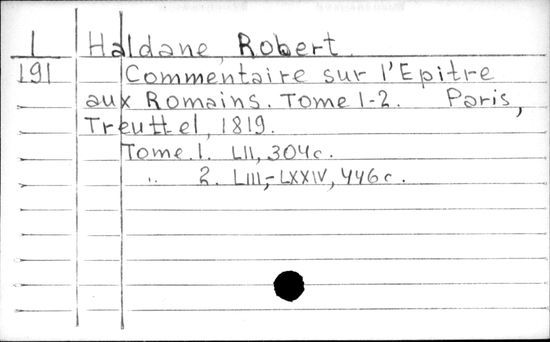 1 Haldane, Robert.
191 Commentaire sur l'Epitre
aux Romains. Tome 1-2. Paris,
Treuttel, 1819.
Tome.1. LII, 304c.
" 2. LIII,-LXXIV, 446c.